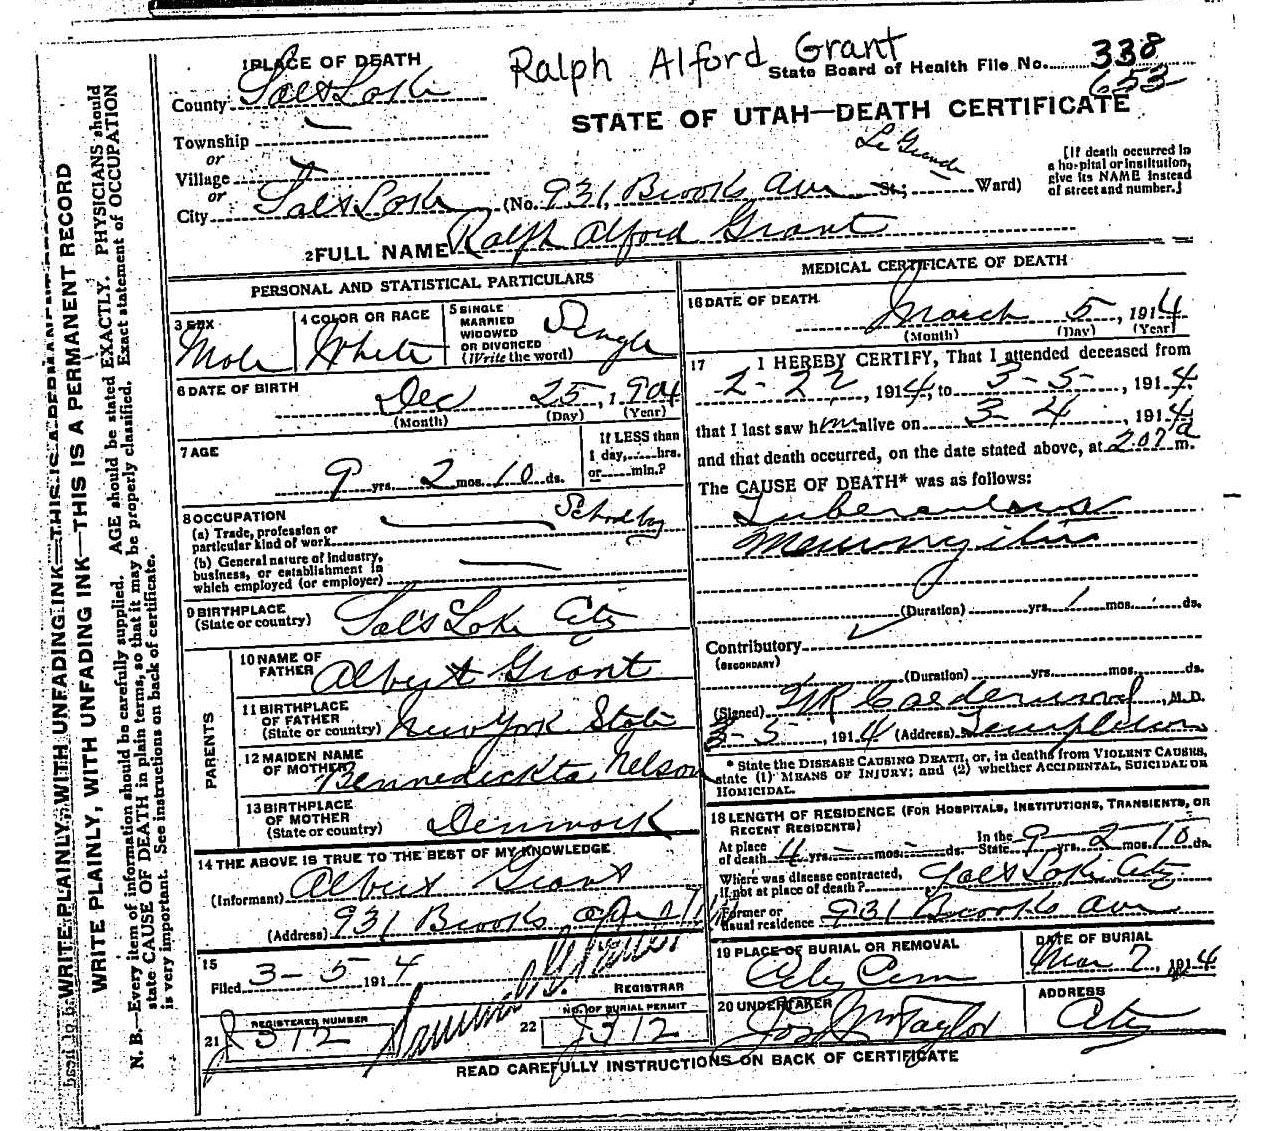 Ralph Alford Grant
1 PLACE OF DEATH
County Salt Lake
State Board of Health File No. 338
653
STATE OF UTAH—DEATH CERTIFICATE
Township
or
Village
or
City Salt Lake (No. 931, Brooks Ave St; Le Grande Ward)
[If death occurred in
a hospital or institution,
give its NAME instead
of street and number.]
2 FULL NAME Ralph Alford Grant
PERSONAL AND STATISTICAL PARTICULARS
3 SEX
Male
4 COLOR OR RACE
White
5 SINGLE
MARRIED
WIDOWED
OR DIVORCED
(Write the word)
Single
6 DATE OF BIRTH
Dec 25, 1904
(Month) (Day) (Year)
7 AGE
9 yrs. 2 mos. 10 ds.
If LESS than
1 day, hrs.
or min.?
8 OCCUPATION
(a) Trade, profession or
particular kind of work
School boy
(b) General nature of industry,
business, or establishment in
which employed (or employer)
9 BIRTHPLACE
(State or country) Salt Lake City
PARENTS
10 NAME OF
FATHER Albert Grant
11 BIRTHPLACE
OF FATHER
(State or country) New York State
12 MAIDEN NAME
OF MOTHER Bennedickta Nelson
13 BIRTHPLACE
OF MOTHER
(State or country) Denmark
14 THE ABOVE IS TRUE TO THE BEST OF MY KNOWLEDGE
(Informant) Albert Grant
(Address) 931 Brooks
15
Filed 3-5 1914
REGISTRAR
21 REGISTERED NUMBER
J 312
22 NO. OF BURIAL PERMIT
J312
MEDICAL CERTIFICATE OF DEATH
16 DATE OF DEATH
March 5, 1914
(Month) (Day) (Year)
17 I HEREBY CERTIFY, That I attended deceased from
2-22, 1914, to 3-5-, 1914,
that I last saw him alive on 3-4, 1914
and that death occurred, on the date stated above, at 207 a m.
The CAUSE OF DEATH* was as follows:
Tuberculous
Meningitis
(Duration) yrs. 1 mos. ds.
Contributory
(SECONDARY)
(Duration) yrs. mos. ds.
(Signed) Calderwood, M.D.
3-5-, 1914 (Address) Templeton
* State the DISEASE CAUSING DEATH, or, in deaths from VIOLENT CAUSES,
state (1) MEANS OF INJURY; and (2) whether ACCIDENTAL, SUICIDAL OR
HOMICIDAL.
18 LENGTH OF RESIDENCE (FOR HOSPITALS, INSTITUTIONS, TRANSIENTS, OR
RECENT RESIDENTS)
At place
of death 4 yrs. - mos. - ds. In the State 9 yrs. 2 mos. 10 ds.
Where was disease contracted,
if not at place of death? Salt Lake City
Former or
usual residence 931 Brooks Ave
19 PLACE OF BURIAL OR REMOVAL
City Cem
DATE OF BURIAL
Mar 7, 1914
20 UNDERTAKER
Jos Wm Taylor
ADDRESS
City
READ CAREFULLY INSTRUCTIONS ON BACK OF CERTIFICATE
WRITE PLAINLY, WITH UNFADING INK—THIS IS A PERMANENT RECORD
WRITE PLAINLY, WITH UNFADING INK—THIS IS A PERMANENT RECORD
N. B.—Every item of information should be carefully supplied. AGE should be stated EXACTLY. PHYSICIANS should
state CAUSE OF DEATH in plain terms, so that it may be properly classified. Exact statement of OCCUPATION
is very important. See instructions on back of certificate.